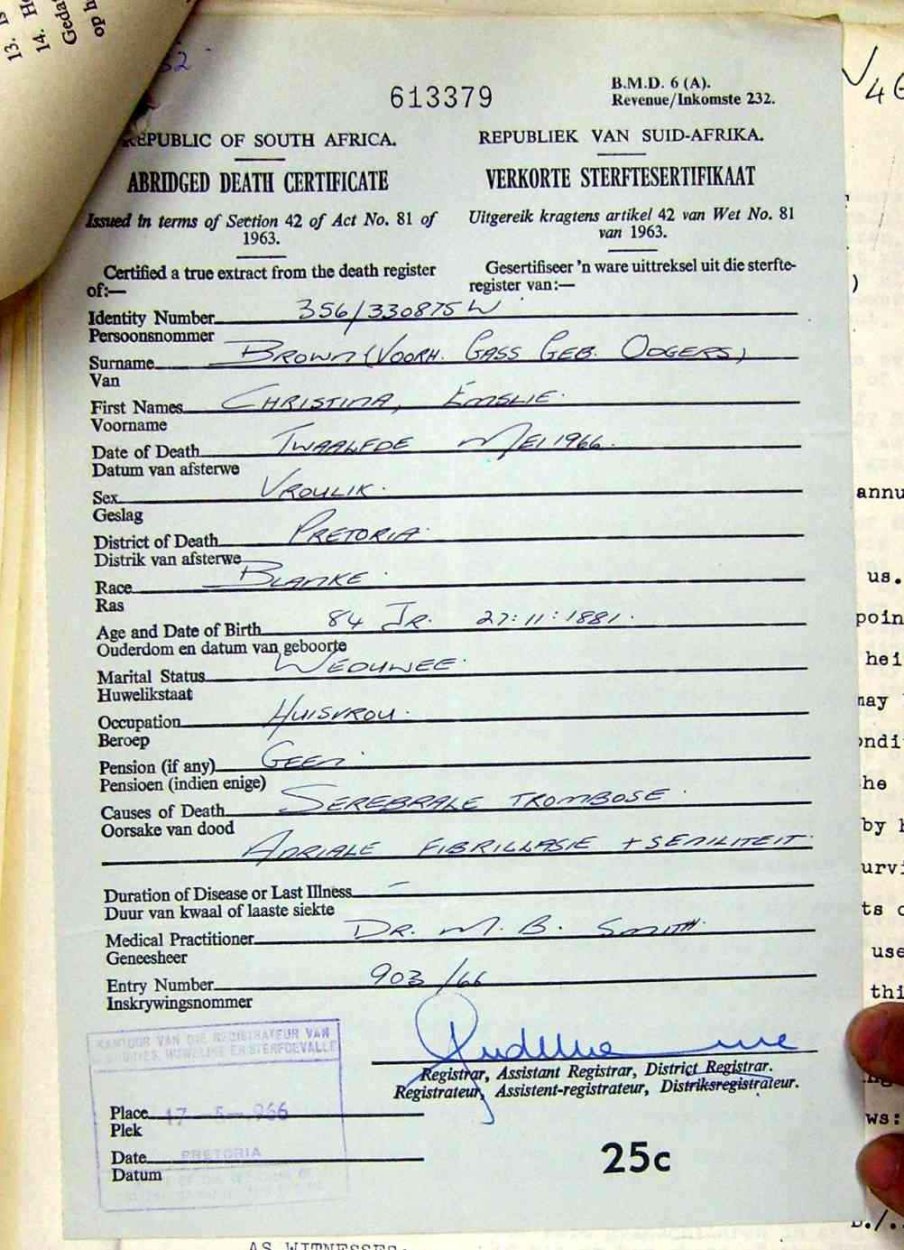 13.
14. H
Geda
op h
32
613379
B.M.D. 6 (A).
Revenue/Inkomste 232.
REPUBLIC OF SOUTH AFRICA.
ABRIDGED DEATH CERTIFICATE
Issued in terms of Section 42 of Act No. 81 of
1963.
Certified a true extract from the death register
of:—
REPUBLIEK VAN SUID-AFRIKA.
VERKORTE STERFTESERTIFIKAAT
Uitgereik kragtens artikel 42 van Wet No. 81
van 1963.
Gesertifiseer 'n ware uittreksel uit die sterfte-
register van:—
Identity Number 356/330875W
Persoonsnommer
Surname BROWN (VOORH. GASS GEB. ODGERS)
Van
First Names CHRISTINA, EMSLIE.
Voorname
Date of Death TWAALFDE MEI 1966.
Datum van afsterwe
Sex VROULIK.
Geslag
District of Death PRETORIA.
Distrik van afsterwe
Race BLANKE.
Ras
Age and Date of Birth 84 JR. 27:11:1881.
Ouderdom en datum van geboorte
Marital Status WEDUWEE.
Huwelikstaat
Occupation HUISVROU.
Beroep
Pension (if any) GEEN.
Pensioen (indien enige)
Causes of Death SEREBRALE TROMBOSE.
Oorsake van dood
ADRIALE FIBRILLASIE + SENILITEIT.
Duration of Disease or Last Illness —
Duur van kwaal of laaste siekte
Medical Practitioner DR. M. B. SMITH.
Geneesheer
Entry Number 903/66
Inskrywingsnommer
Registrar, Assistant Registrar, District Registrar.
Registrateur, Assistent-registrateur, Distriksregistrateur.
KANTOOR VAN DIE REGISTRATEUR VAN
HUWELIKE EN STERFGEVALLE
Place 17-5-1966
Plek
Date PRETORIA
Datum
25c
46
)
annu
us.
poin
hei
may
ondi
he
by
urvi
ts
use
thi
ws:
AS WITNESSES: